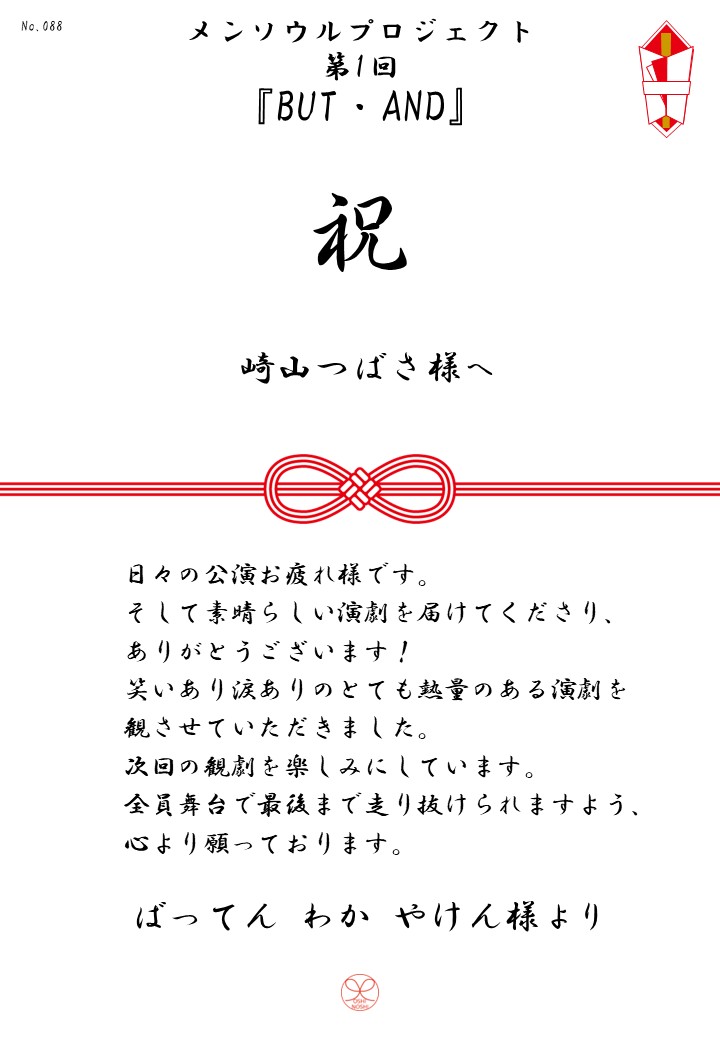 No.088
メンソウルプロジェクト
第1回
『BUT・AND』
祝
崎山つばさ様へ
日々の公演お疲れ様です。
そして素晴らしい演劇を届けてくださり、
ありがとうございます！
笑いあり涙ありのとても熱量のある演劇を
観させていただきました。
次回の観劇を楽しみにしています。
全員舞台で最後まで走り抜けられますよう、
心より願っております。
ばってん わか やけん様より
OSHI
NOSHI